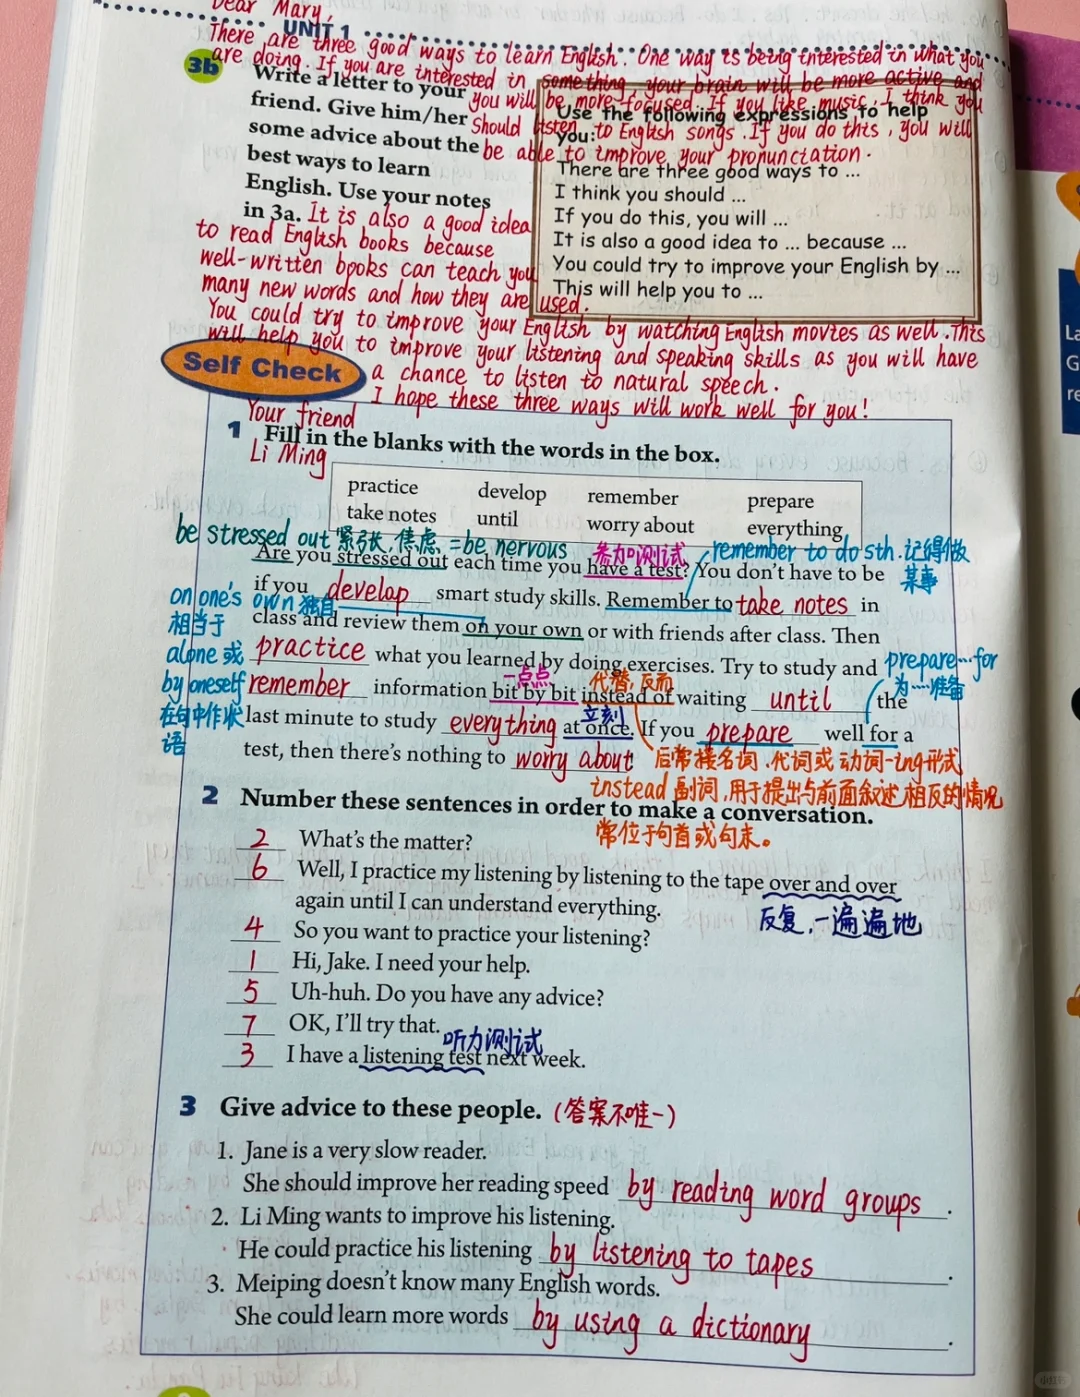 Dear Mary,
UNIT 1
There are three good ways to learn English. One way is being interested in what you
are doing. If you are interested in something, your brain will be more active and
you will be more focused. If you like music, I think you
should listen to English songs. If you do this, you will
be able to improve your pronunciation.
3b Write a letter to your
friend. Give him/her
some advice about the
best ways to learn
English. Use your notes
in 3a.
Use the following expressions to help
you:
There are three good ways to ...
I think you should ...
If you do this, you will ...
It is also a good idea to ... because ...
You could try to improve your English by ...
This will help you to ...
It is also a good idea
to read English books because
well-written books can teach you
many new words and how they are used.
You could try to improve your English by watching English movies as well. This
will help you to improve your listening and speaking skills as you will have
a chance to listen to natural speech.
I hope these three ways will work well for you!
Your friend
Li Ming
Self Check
1 Fill in the blanks with the words in the box.
practice develop remember prepare
take notes until worry about everything
be stressed out 紧张,焦虑 =be nervous 参加测试 remember to do sth.记得做
某事
Are you stressed out each time you have a test? You don't have to be
if you develop smart study skills. Remember to take notes in
class and review them on your own or with friends after class. Then
practice what you learned by doing exercises. Try to study and
remember information bit by bit instead of waiting until the
last minute to study everything at once. If you prepare well for a
test, then there's nothing to worry about.
on one's own 独自
相当于
alone 或
by oneself
在句中作状
语
一点点
代替,反而
立刻
prepare...for
为……准备
后常接名词、代词或动词-ing形式
instead 副词,用于提出与前面叙述相反的情况
常位于句首或句末。
2 Number these sentences in order to make a conversation.
2 What's the matter?
6 Well, I practice my listening by listening to the tape over and over
again until I can understand everything.
反复,一遍遍地
4 So you want to practice your listening?
1 Hi, Jake. I need your help.
5 Uh-huh. Do you have any advice?
7 OK, I'll try that.
听力测试
3 I have a listening test next week.
3 Give advice to these people. (答案不唯一)
1. Jane is a very slow reader.
She should improve her reading speed by reading word groups.
2. Li Ming wants to improve his listening.
He could practice his listening by listening to tapes.
3. Meiping doesn't know many English words.
She could learn more words by using a dictionary.